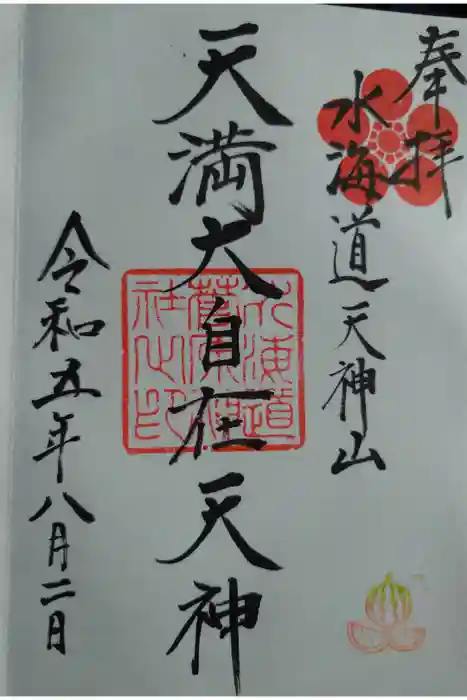 奉拝
水海道天神山
天満大自在天神
水海道菅原神社之印
令和五年八月二日